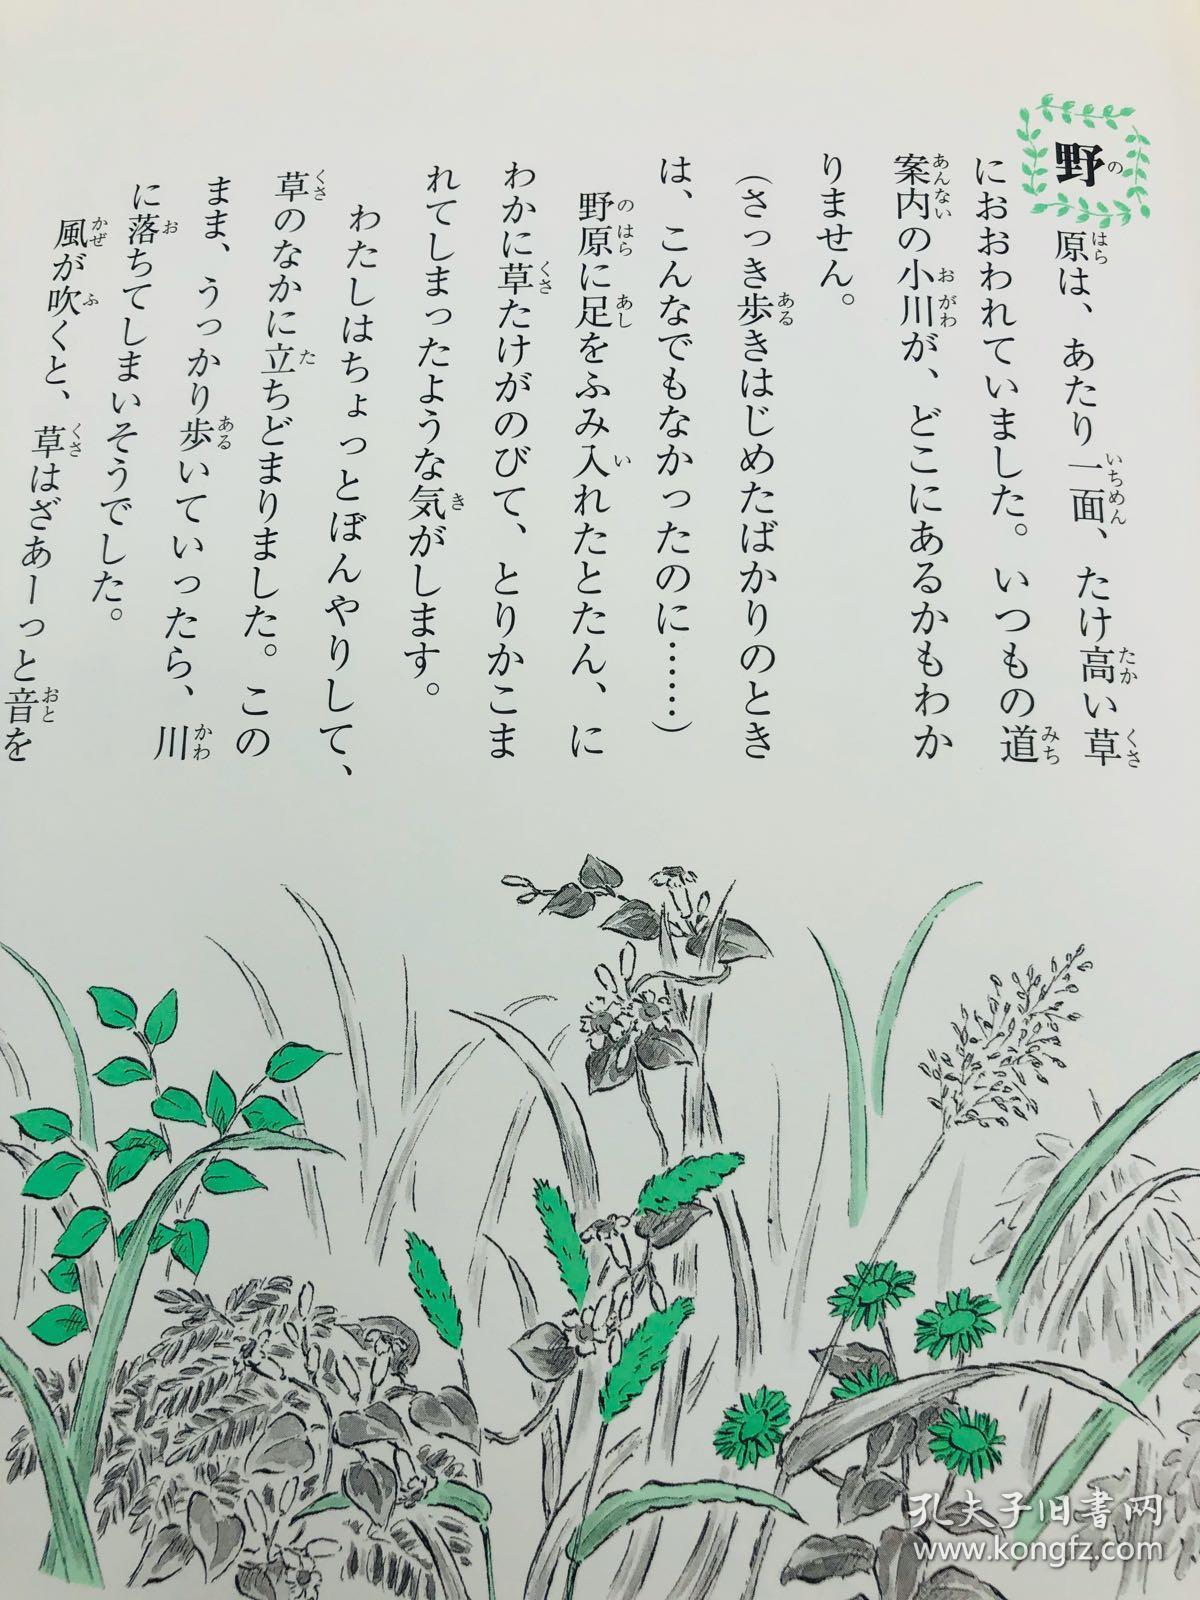 野原は、あたり一面、たけ高い草
におおわれていました。いつもの道
案内の小川が、どこにあるかもわか
りません。
(さっき歩きはじめたばかりのとき
は、こんなでもなかったのに……)
野原に足をふみ入れたとたん、に
わかに草たけがのびて、とりかこま
れてしまったような気がします。
わたしはちょっとぼんやりして、
草のなかに立ちどまりました。この
まま、うっかり歩いていったら、川
に落ちてしまいそうでした。
風が吹くと、草はざあーっと音を
孔夫子旧書网
www.kongfz.com